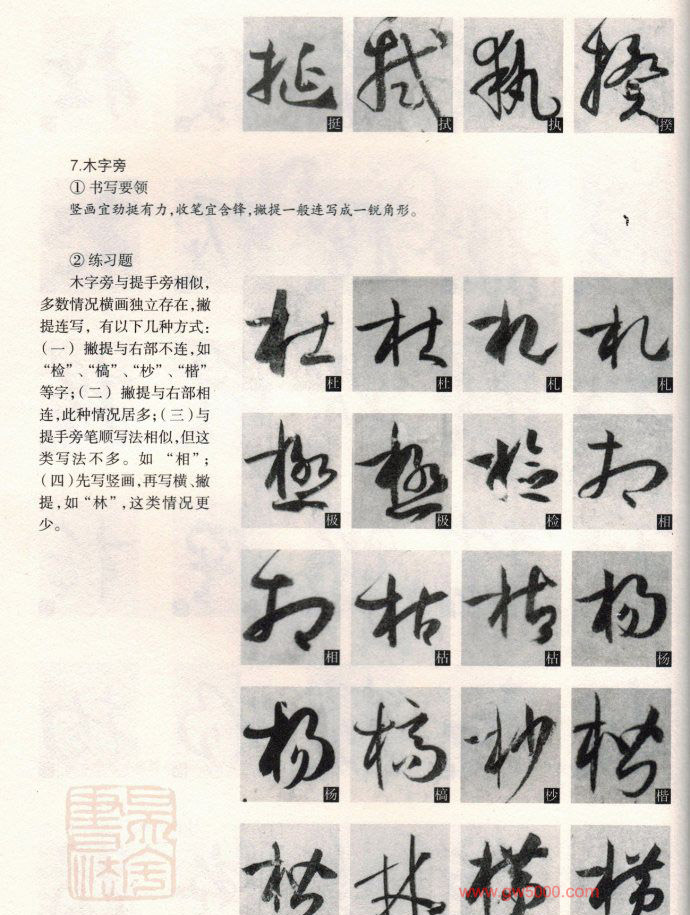 挺 拭 执 揆
7.木字旁
① 书写要领
竖画宜劲挺有力,收笔宜含锋,撇提一般连写成一锐角形。
② 练习题
木字旁与提手旁相似,
多数情况横画独立存在,撇
提连写，有以下几种方式:
(一) 撇提与右部不连,如
“检”、“槁”、“杪”、“楷”
等字;(二) 撇提与右部相
连,此种情况居多;(三)与
提手旁笔顺写法相似,但这
类写法不多。如 “相”;
(四)先写竖画,再写横、撇
提,如“林”,这类情况更
少。
杜 杜 札 札
极 极 检 相
相 枯 枯 杨
杨 槁 杪 楷